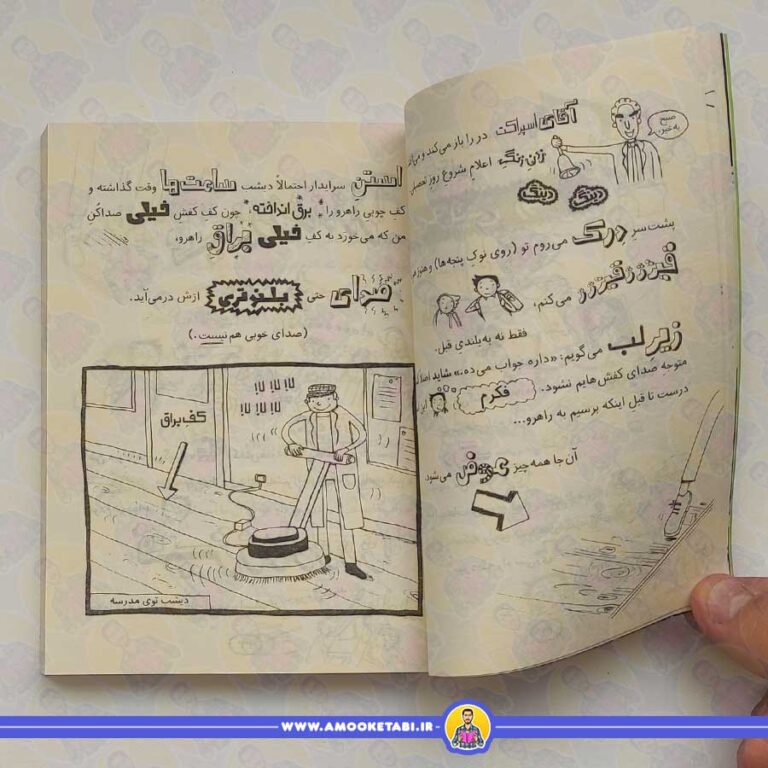 آقای اسپراکت در را باز می‌کند و
زنگ زنگ اعلام شروع روز
صبح
به‌خیر،
دینگ دینگ
پشت سر درک می‌روم تو (روی نوک پنجه‌ها) و هنوز
قیژژژ قیژژژ
می‌کنم،
فقط نه به‌بلندی قبل.
زیر لب می‌گویم: «داره جواب می‌ده.» شاید
متوجه صدای کفش‌هایم نشود.
فکرم
درست تا قبل اینکه برسیم به راهرو...
آن‌جا همه‌چیز عوض می‌شود
استن سرایدار احتمالاً دیشب ساعت‌ها وقت گذاشته و
کف چوبی راهرو را برق انداخته، چون کف کفش خیلی صداکن
من که می‌خورَد به کف خیلی براق راهرو،
صدای حتی بلندتری ازش درمی‌آید.
(صدای خوبی هم نیست.)
کف براق
دیشب توی مدرسه
WWW.AMOOKETABI.IR